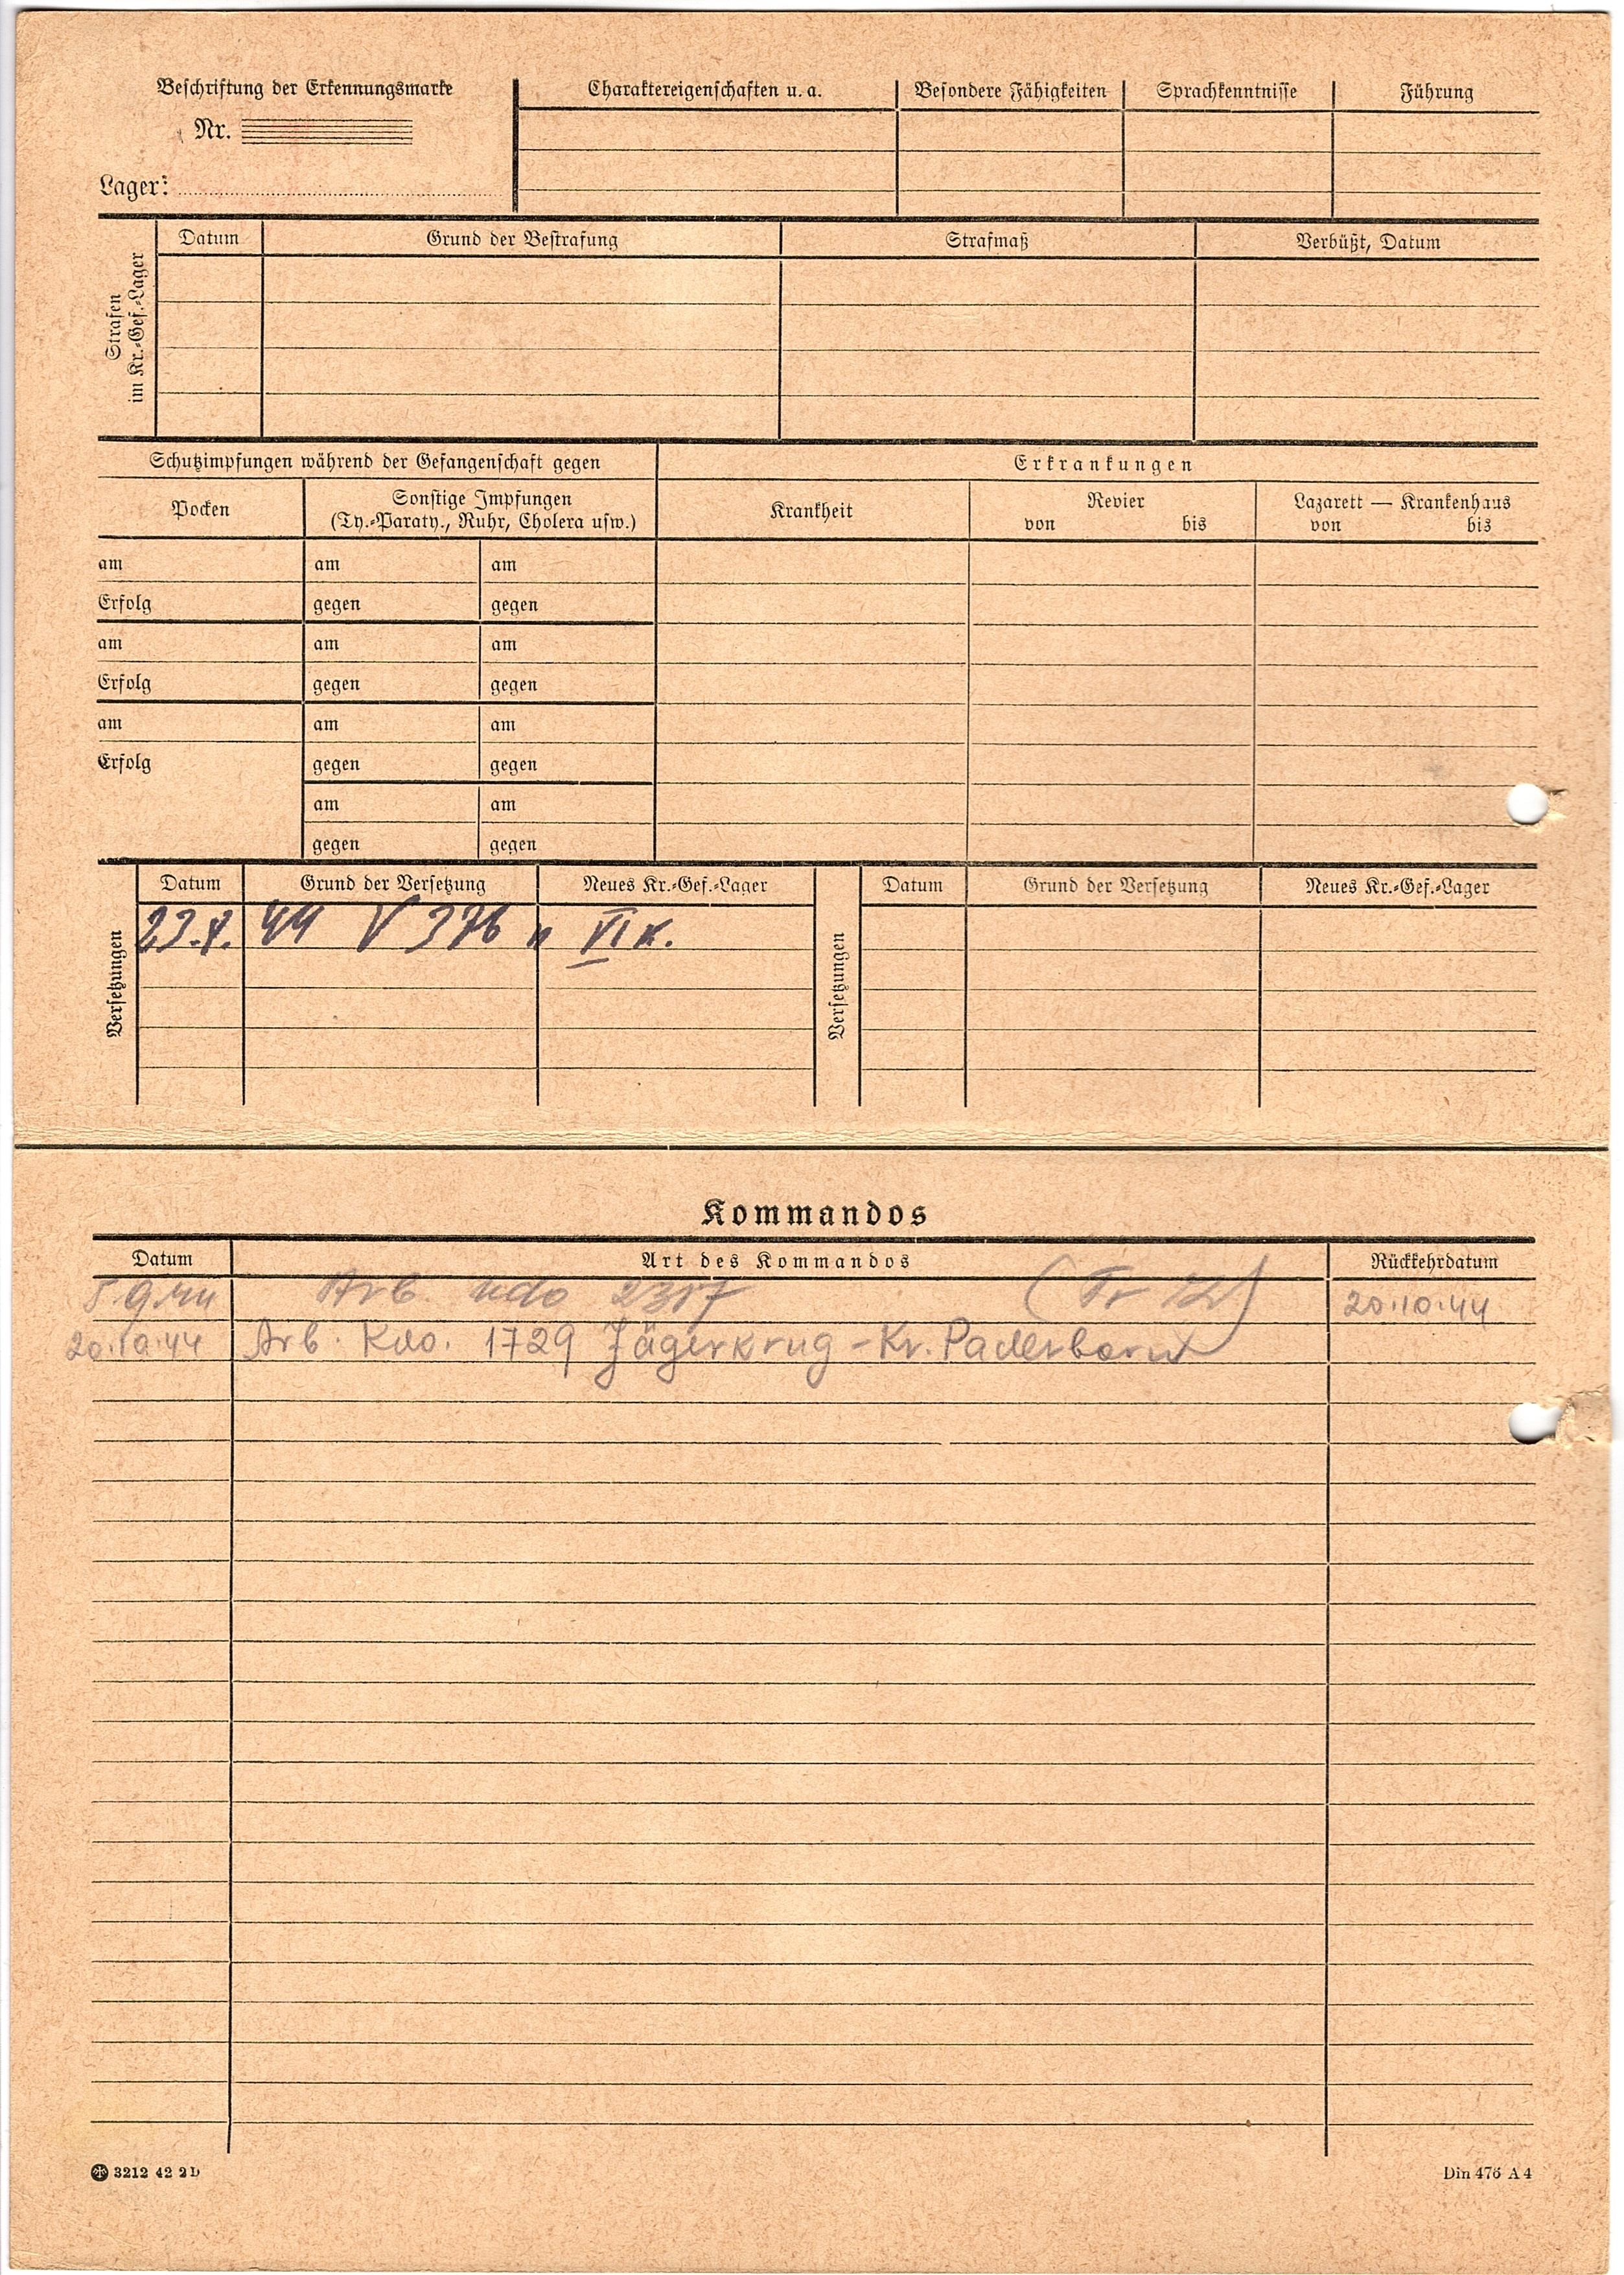 Beschriftung der Erkennungsmarke
Nr.
Lager:
Charaktereigenschaften u. a.
Besondere Fähigkeiten
Sprachkenntnisse
Führung
Strafen
im Kr.-Gef.-Lager
Datum
Grund der Bestrafung
Strafmaß
Verbüßt, Datum
Schutzimpfungen während der Gefangenschaft gegen
Erkrankungen
Pocken
Sonstige Impfungen
(Ty.-Paraty., Ruhr, Cholera usw.)
Krankheit
Revier
von bis
Lazarett — Krankenhaus
von bis
am am am
Erfolg gegen gegen
am am am
Erfolg gegen gegen
am am am
Erfolg gegen gegen
am am
gegen gegen
Versetzungen
Datum Grund der Versetzung Neues Kr.-Gef.-Lager
44 V 376 n VI K.
Versetzungen
Datum Grund der Versetzung Neues Kr.-Gef.-Lager
Kommandos
Datum Art des Kommandos Rückkehrdatum
5.9.44 Arb. Kdo 20.10.44
20.10.44 Arb. Kdo. 1729 Jägerkrug - Kr. Paderborn
3212 42 2D
Din 476 A 4